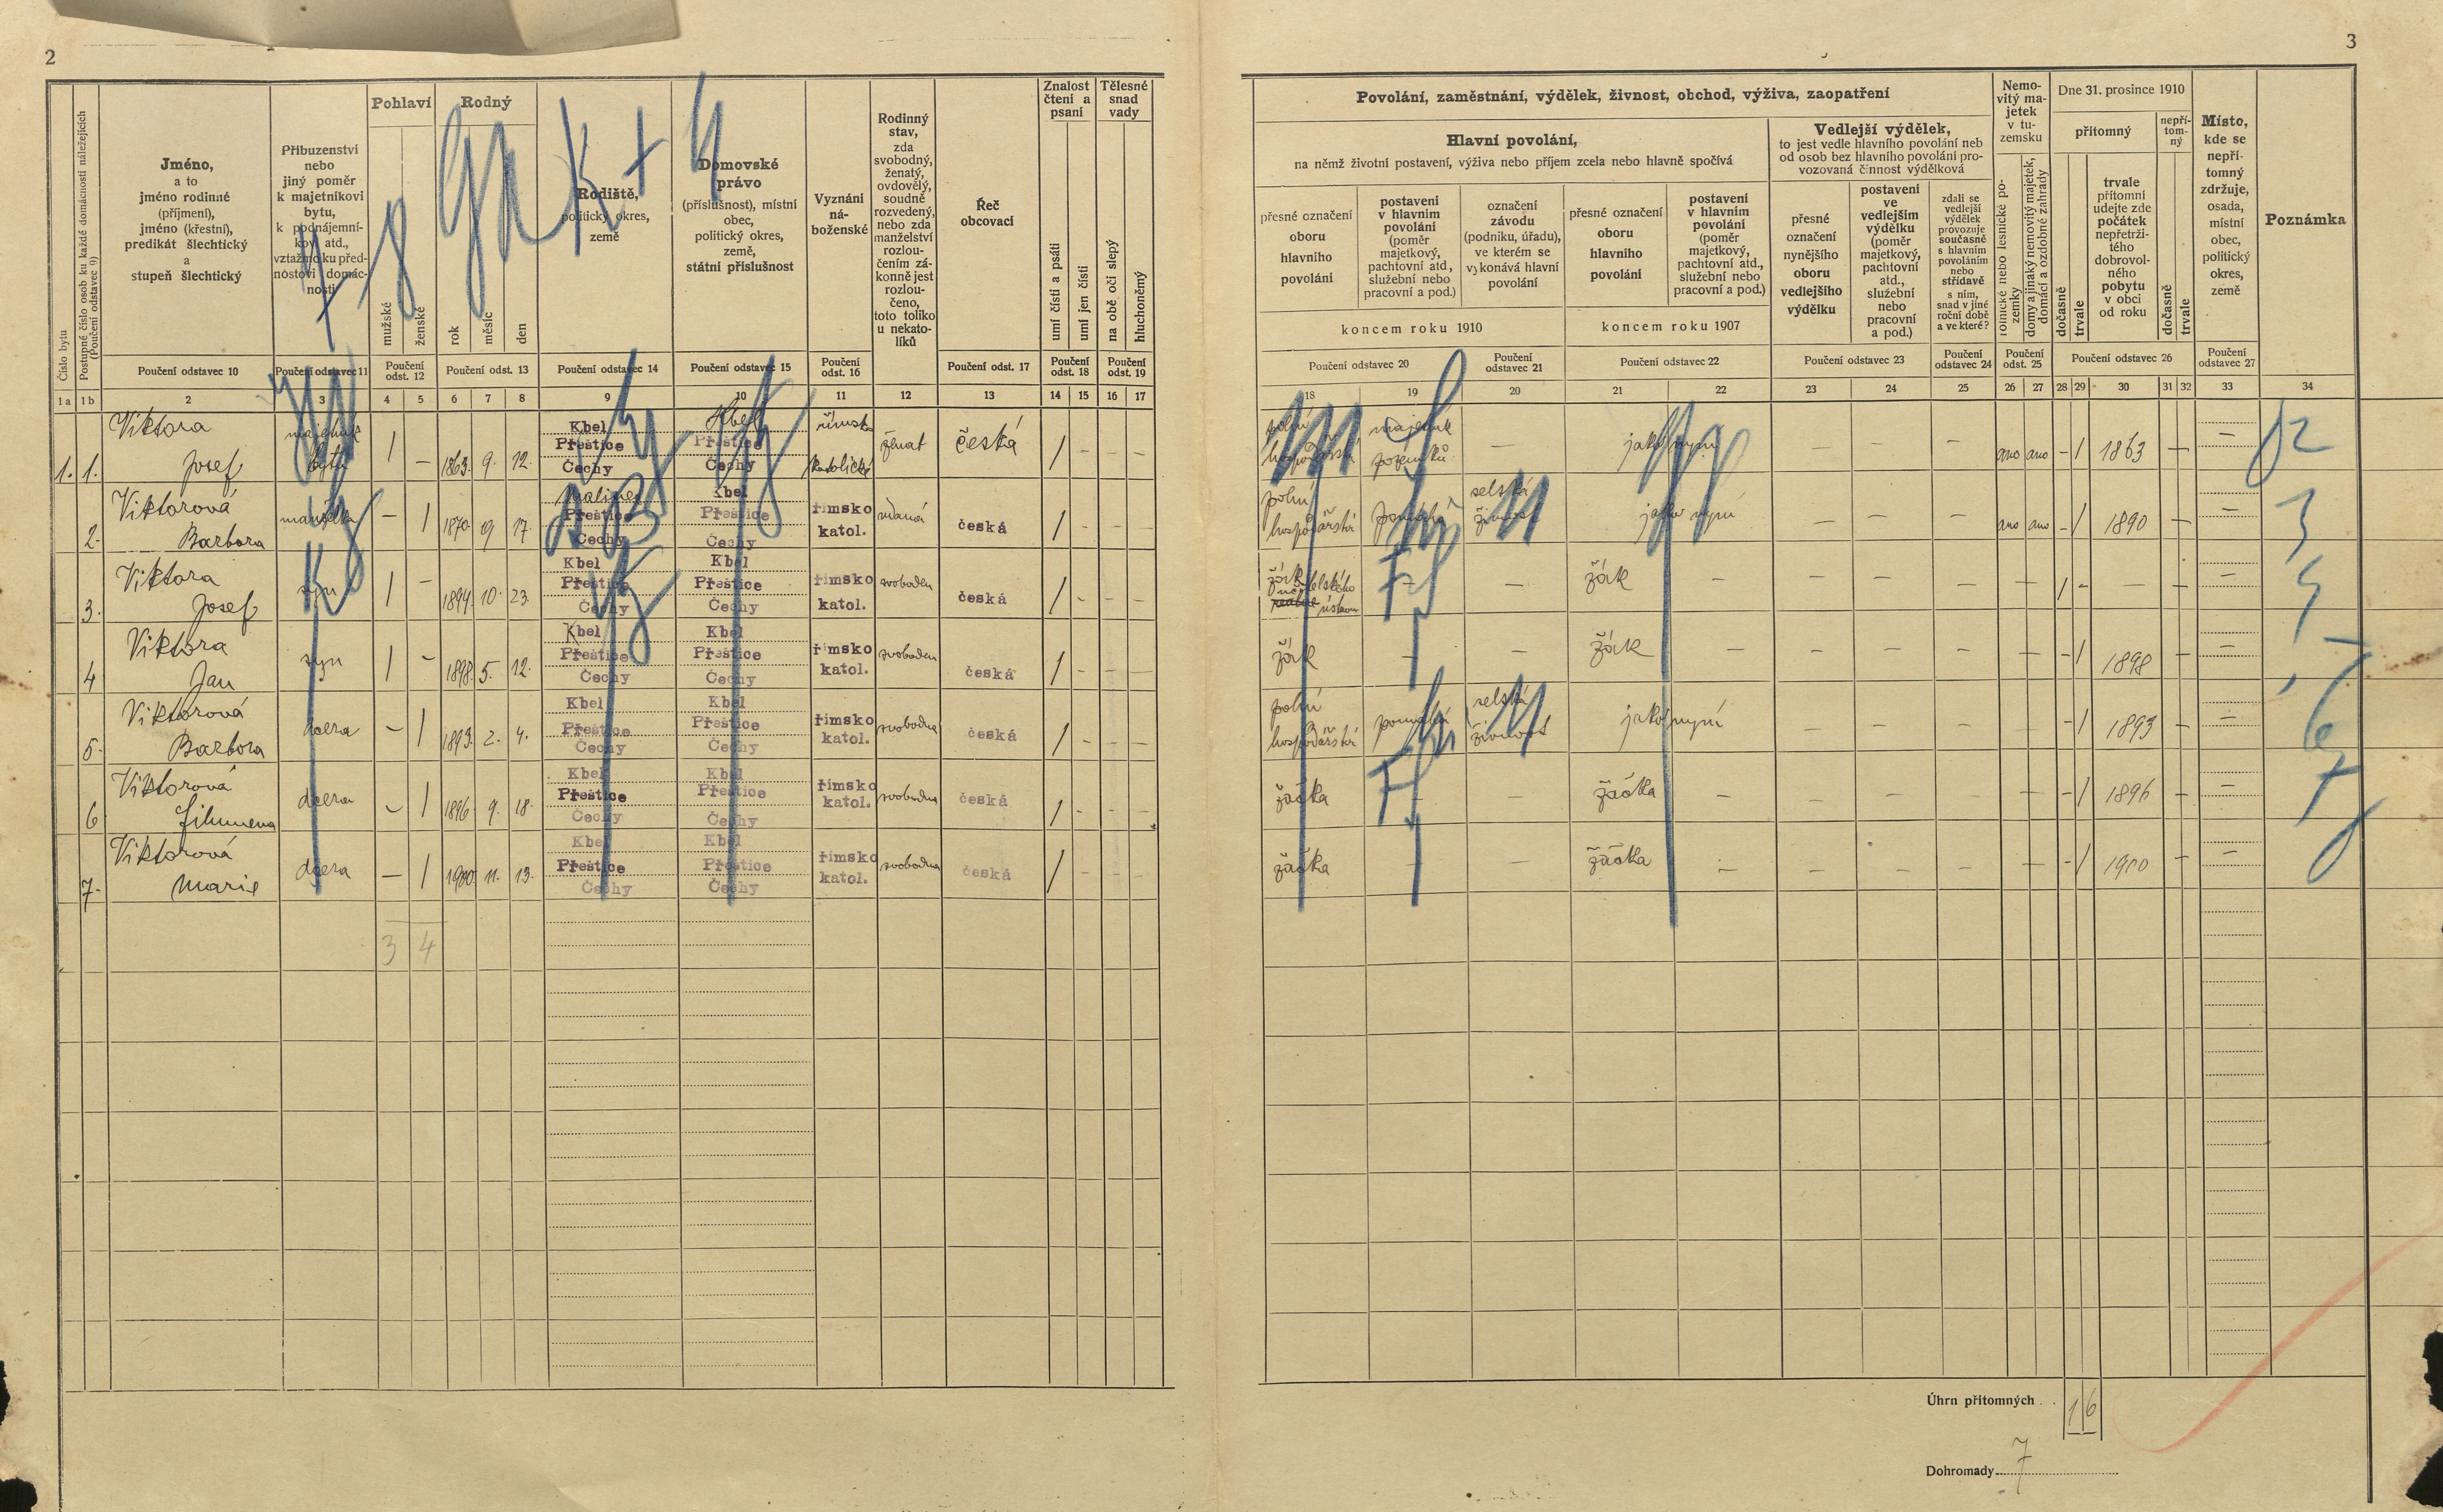 2
3
Číslo bytu
Postupné číslo osob ku každé domácnosti náležejících
(Poučení odstavec 9)
Jméno,
a to
jméno rodinné
(příjmení),
jméno (křestní),
predikát šlechtický
a
stupeň šlechtický
Příbuzenství
nebo
jiný poměr
k majetníkovi
bytu,
k podnájemní-
kovi atd.,
vztažmo ku před-
nostovi domác-
nosti
Pohlaví
mužské
ženské
Rodný
rok
měsíc
den
Rodiště,
politický okres,
země
Domovské
právo
(příslušnost), místní
obec,
politický okres,
země,
státní příslušnost
Vyznání
ná-
boženské
Rodinný
stav,
zda
svobodný,
ženatý,
ovdovělý,
soudně
rozvedený,
nebo zda
manželství
rozlou-
čením zá-
konně jest
rozlou-
čeno,
toto toliko
u nekato-
líků
Řeč
obcovací
Znalost
čtení a
psaní
umí čísti a psáti
umí jen čísti
Tělesné
snad
vady
na obě oči slepý
hluchoněmý
Poučení odstavec 10
Poučení odstavec 11
Poučení
odst. 12
Poučení odst. 13
Poučení odstavec 14
Poučení odstavec 15
Poučení
odst. 16
Poučení odst. 17
Poučení
odst. 18
Poučení
odst. 19
1a 1b 2 3 4 5 6 7 8 9 10 11 12 13 14 15 16 17
Povolání, zaměstnání, výdělek, živnost, obchod, výživa, zaopatření
Hlavní povolání,
na němž životní postavení, výživa nebo příjem zcela nebo hlavně spočívá
přesné označení
oboru
hlavního
povolání
postavení
v hlavním
povolání
(poměr
majetkový,
pachtovní atd.,
služební nebo
pracovní a pod.)
označení
závodu
(podniku, úřadu),
ve kterém se
vykonává hlavní
povolání
přesné označení
oboru
hlavního
povolání
postavení
v hlavním
povolání
(poměr
majetkový,
pachtovní atd.,
služební nebo
pracovní a pod.)
koncem roku 1910
koncem roku 1907
Vedlejší výdělek,
to jest vedle hlavního povolání neb
od osob bez hlavního povolání pro-
vozovaná činnost výdělková
přesné
označení
nynějšího
oboru
vedlejšího
výdělku
postavení
ve
vedlejším
výdělku
(poměr
majetkový,
pachtovní
atd.,
služební
nebo
pracovní
a pod.)
zdali se
vedlejší
výdělek
provozuje
současně
s hlavním
povoláním
nebo
střídavě
s ním,
snad v jiné
roční době
a ve které?
Nemo-
vitý ma-
jetek
v tu-
zemsku
rolnické nebo lesnické po-
zemky
domy a jinaký nemovitý majetek,
domácí a ozdobné zahrady
Dne 31. prosince 1910
přítomný
dočasně
trvale
trvale
přítomní
udejte zde
počátek
nepřetrži-
tého
dobrovol-
ného
pobytu
v obci
od roku
nepří-
tom-
ný
dočasně
trvale
Místo,
kde se
nepří-
tomný
zdržuje,
osada,
místní
obec,
politický
okres,
země
Poznámka
Poučení odstavec 20
Poučení
odstavec 21
Poučení odstavec 22
Poučení odstavec 23
Poučení
odstavec 24
Poučení
odst. 25
Poučení odstavec 26
Poučení
odstavec 27
18 19 20 21 22 23 24 25 26 27 28 29 30 31 32 33 34
1. 1. Viktora Josef majetník bytu / – 1863. 9. 12. Kbel Přeštice Čechy Kbel Přeštice Čechy římsko katolické ženat česká / - – – polní hospodářství majetník pozemků — jako nyní — — — ano ano - / 1863 — —
2. Viktorová Barbora manželka – / 1870 9 17. Malinec Přeštice Čechy Kbel Přeštice Čechy římsko katol. vdaná česká / - - - polní hospodářství pomáhá selská živnost jako nyní — — — ano ano - / 1890 — —
3. Viktora Josef syn / – 1894. 10. 23. Kbel Přeštice Čechy Kbel Přeštice Čechy římsko katol. svoboden česká / - - - žák učitelského ústavu — — žák — — — — — / - — — —
4 Viktora Jan syn / – 1898. 5. 12. Kbel Přeštice Čechy Kbel Přeštice Čechy římsko katol. svoboden česká / - - - žák — — žák — — — — — - / 1898 — —
5. Viktorová Barbora dcera – / 1893. 2. 4. Kbel Přeštice Čechy Kbel Přeštice Čechy římsko katol. svobodna česká / - - - polní hospodářství pomáhá selská živnost jako nyní — — — — - / 1893 — —
6 Viktorová Filumena dcera – / 1896 9. 18. Kbel Přeštice Čechy Kbel Přeštice Čechy římsko katol. svobodna česká / - - - žačka — — žačka — — — — — - / 1896 — —
7. Viktorová Marie dcera – / 1900. 11. 13. Kbel Přeštice Čechy Kbel Přeštice Čechy římsko katol. svobodna česká / - - - žačka — — žačka — — — — — - / 1900 — —
3 4
Úhrn přítomných . . 1 6
Dohromady 7